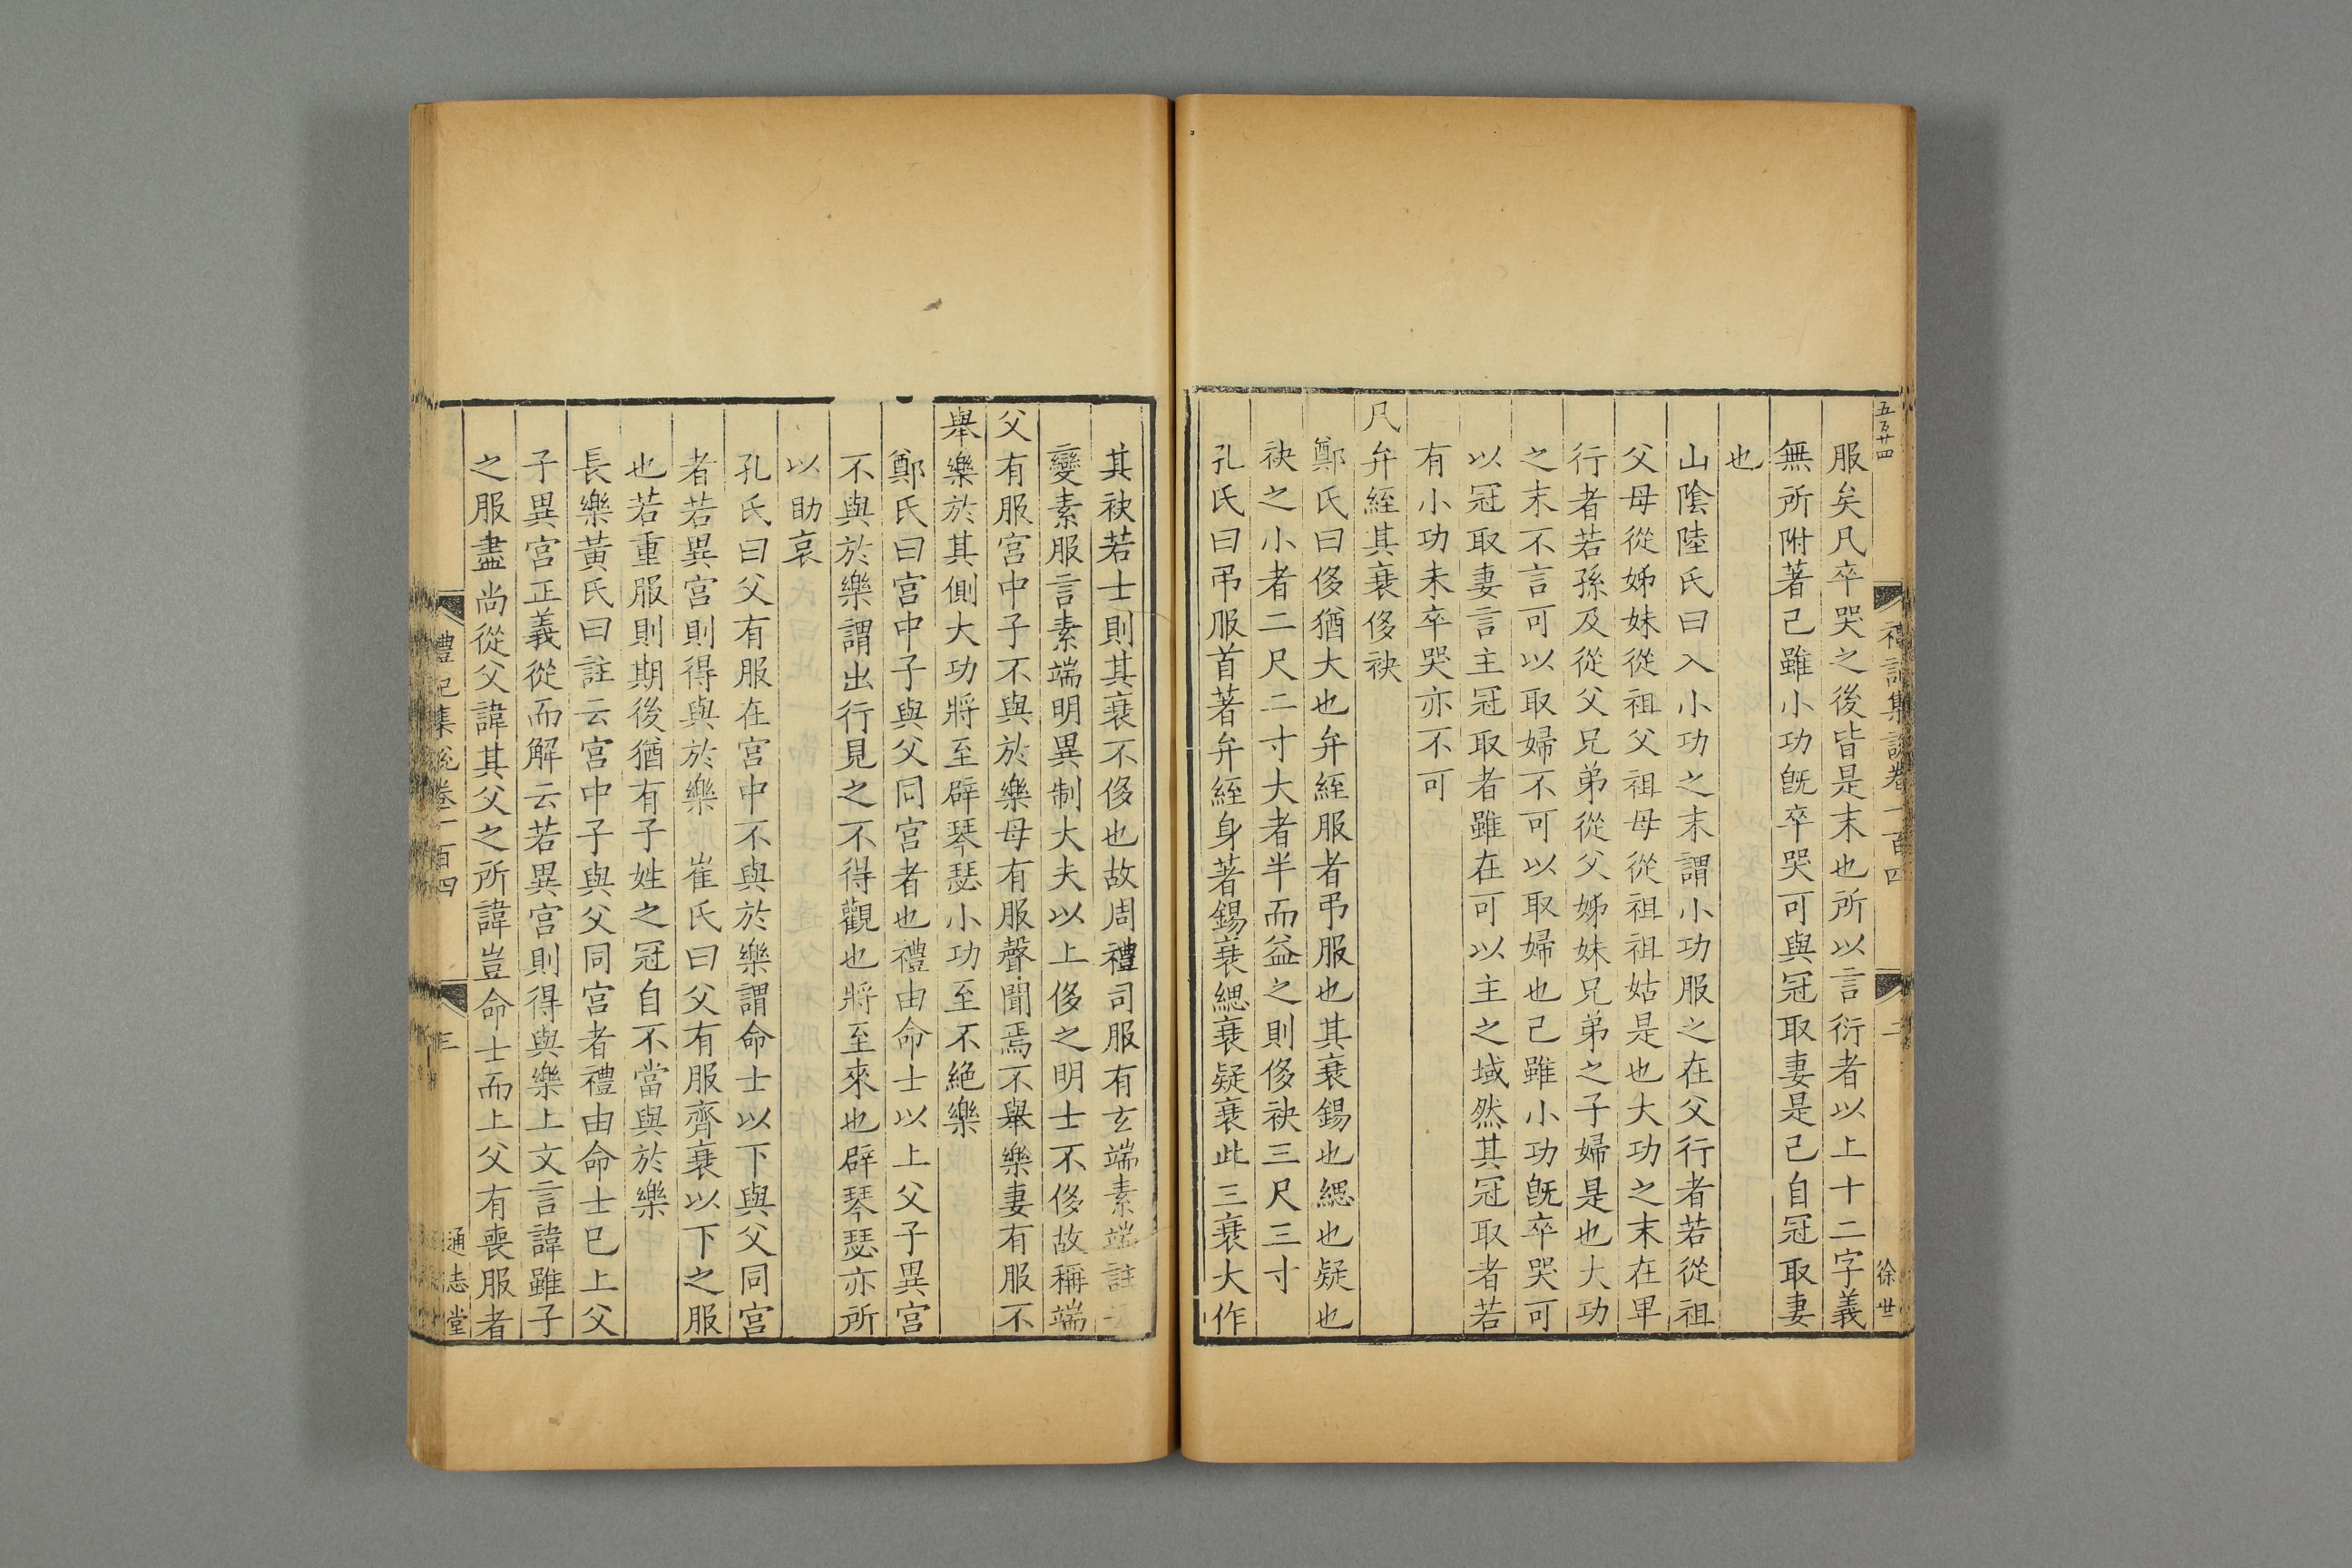 五百廿四
禮記集說卷一百四
二
徐世
服矣凡卒哭之後皆是末也所以言衍者以上十二字義
無所附著己雖小功既卒哭可與冠取妻是己自冠取妻
也
山陰陸氏曰入小功之末謂小功服之在父行者若從祖
父母從姊妹從祖父祖母從祖祖姑是也大功之末在卑
行者若孫及從父兄弟從父姊妹兄弟之子婦是也大功
之末不言可以取婦不可以取婦也己雖小功旣卒哭可
以冠取妻言主冠取者雖在可以主之域然其冠取者若
有小功未卒哭亦不可
凡弁絰其衰侈袂
鄭氏曰侈猶大也弁絰服者弔服也其衰錫也緦也疑也
袂之小者二尺二寸大者半而益之則侈袂三尺三寸
孔氏曰弔服首著弁絰身著錫衰緦衰疑衰此三衰大作
其袂若士則其衰不侈也故周禮司服有玄端素端註
變素服言素端明異制大夫以上侈之明士不侈故稱端
父有服宮中子不與於樂母有服聲聞焉不舉樂妻有服不
舉樂於其側大功將至辟琴瑟小功至不絕樂
鄭氏曰宮中子與父同宮者也禮由命士以上父子異宮
不與於樂謂出行見之不得觀也將至來也辟琴瑟亦所
以助哀
孔氏曰父有服在宮中不與於樂謂命士以下與父同宮
者若異宮則得與於樂 崔氏曰父有服齊衰以下之服
也若重服則期後猶有子姓之冠自不當與於樂
長樂黃氏曰註云宮中子與父同宮者禮由命士已上父
子異宮正義從而解云若異宮則得與樂上文言諱雖子
之服盡尚從父諱其父之所諱豈命士而上父有喪服者
禮記集說卷一百四
三
通志堂